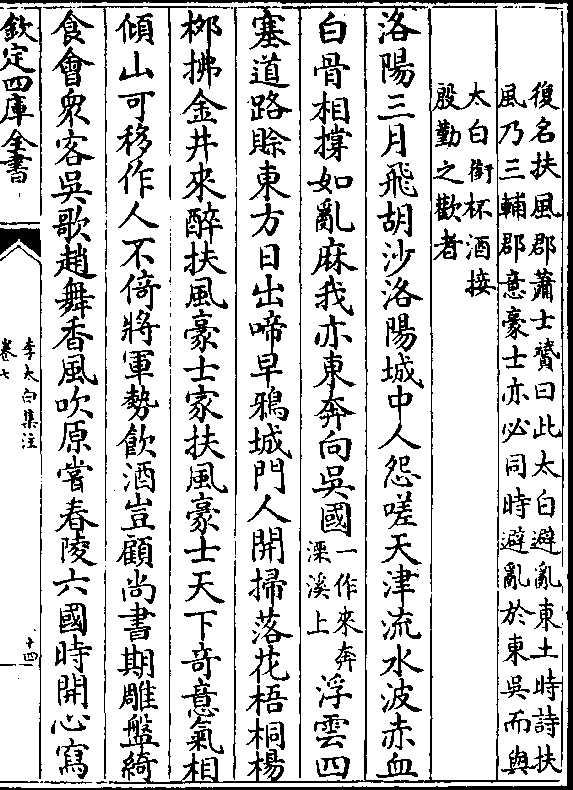 復名扶風郡蕭士贇曰此太白避亂東土時詩扶
風乃三輔郡意豪士亦必同時避亂於東吳而與
太白銜杯酒接
殷勤之歡者
洛陽三月飛胡沙洛陽城中人怨嗟天津流水波赤血
白骨相撐如亂麻我亦東奔向吳國一作來奔溧溪上浮雲四
塞道路賒東方日出啼早鴉城門人開掃落花梧桐楊
栁拂金井來醉扶風豪士家扶風豪士天下竒意氣相
傾山可移作人不倚將軍勢飲酒豈顧尚書期雕盤綺
食會衆客吳歌趙舞香風吹原嘗春陵六國時開心寫
欽定四庫全書
李太白集注
卷七
十四